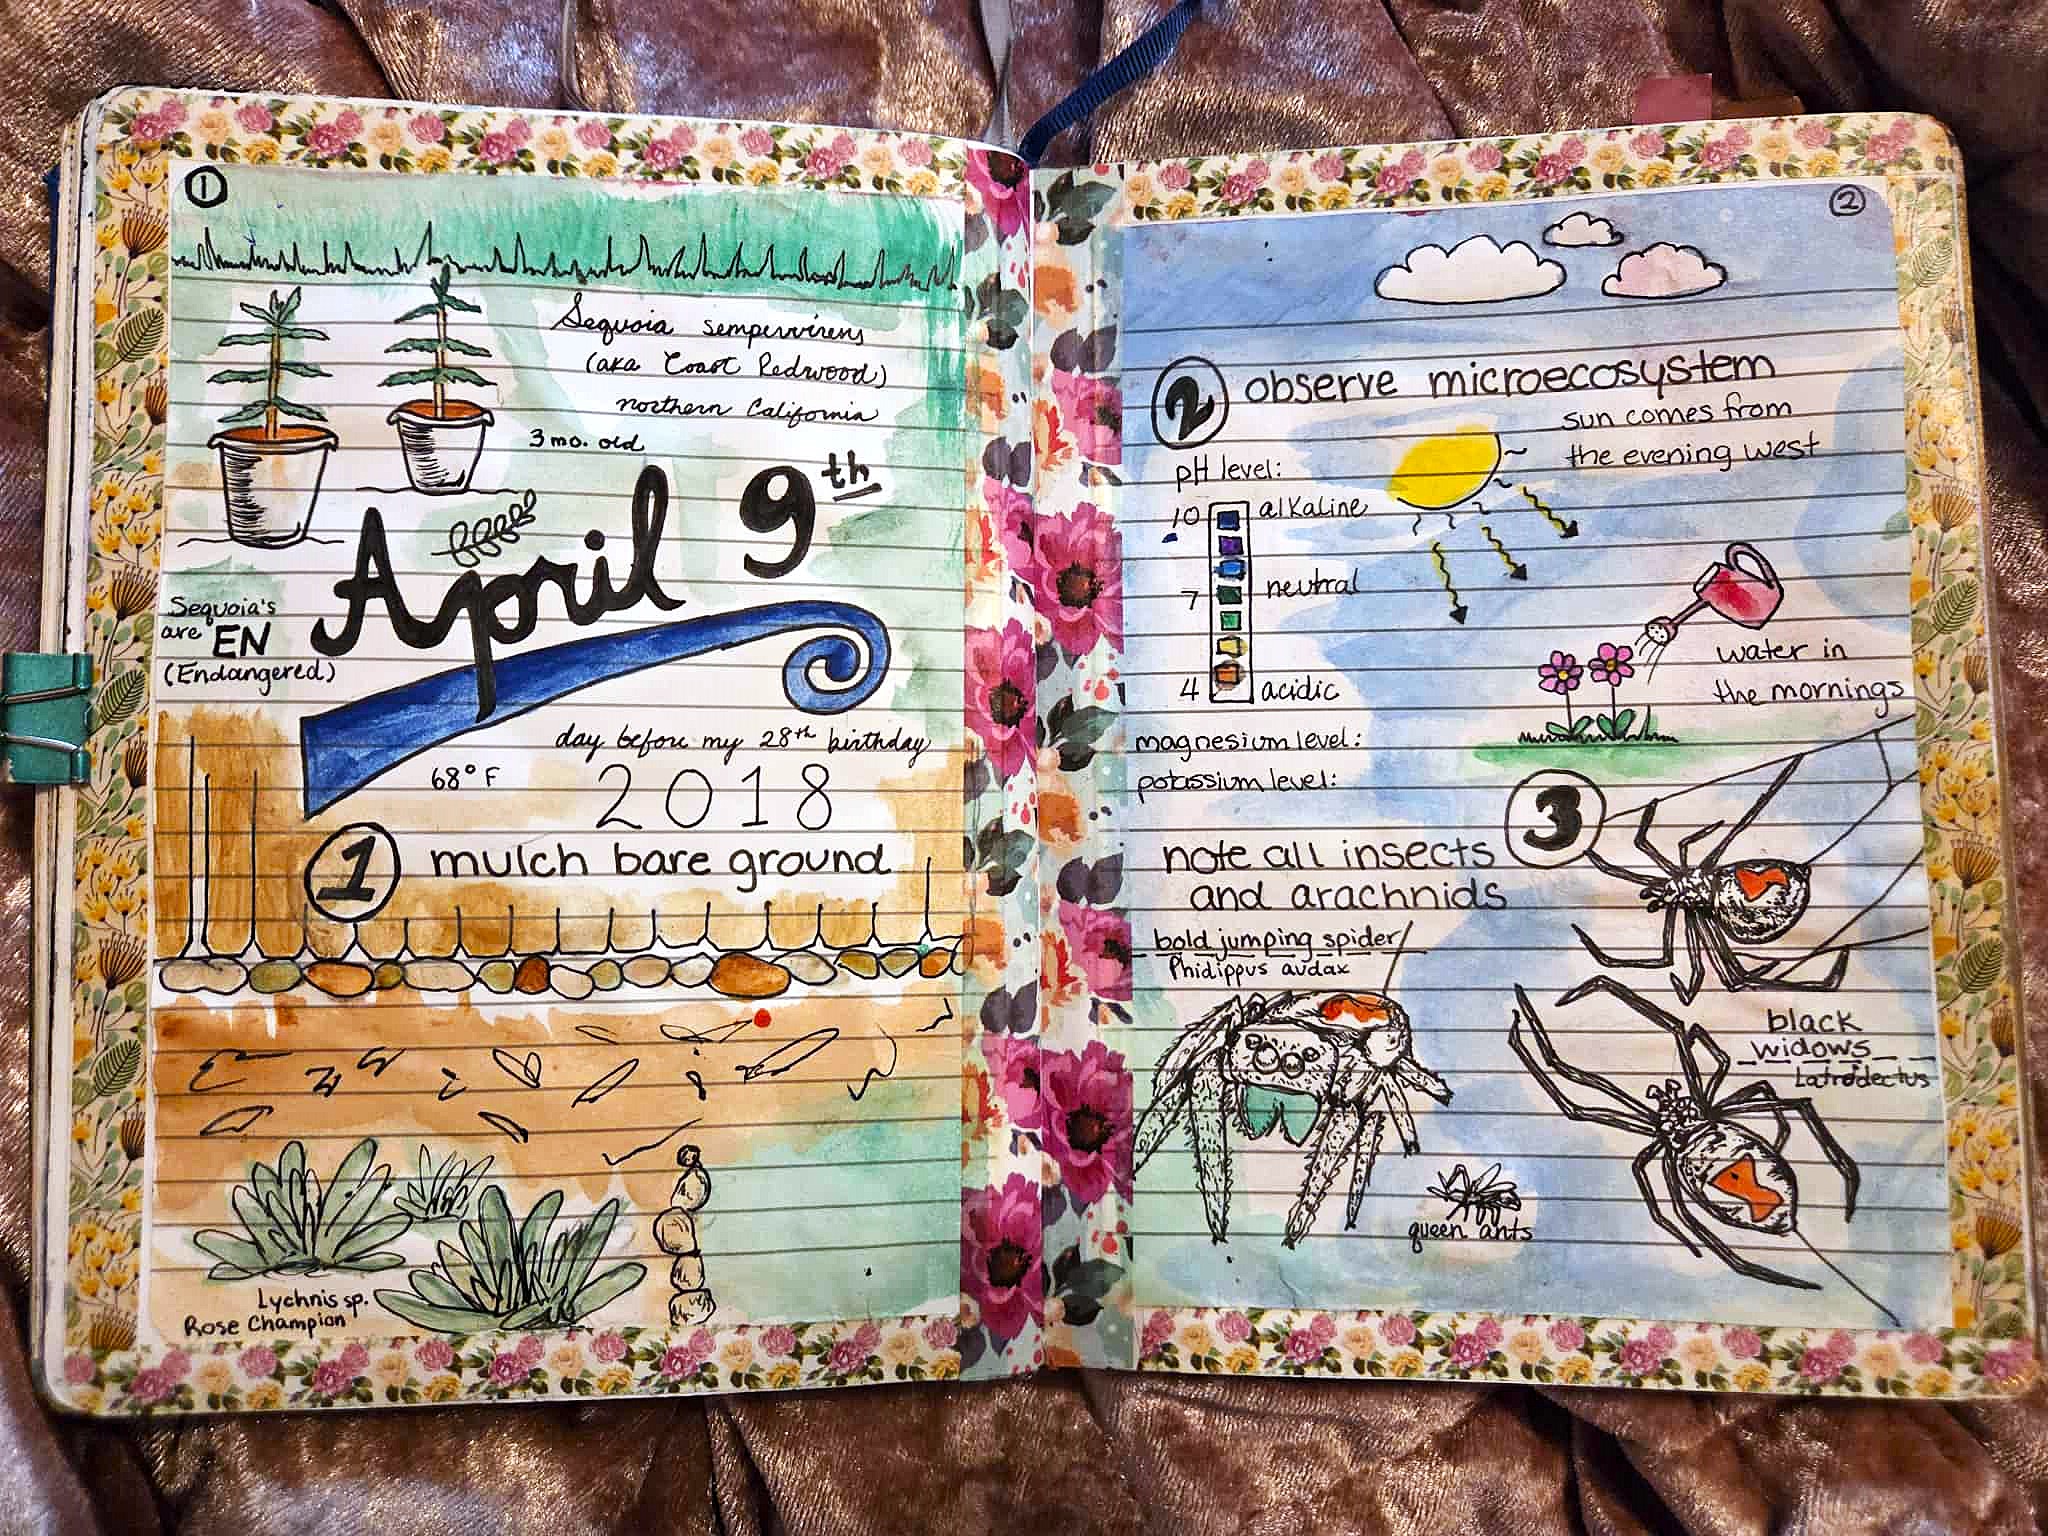 1
Sequoia sempervirens
(aka Coast Redwood)
northern California
3 mo. old
April 9th
Sequoia's
are EN
(Endangered)
day before my 28th birthday
68° F
2018
1 mulch bare ground
Lychnis sp.
Rose Champion
2
2 observe microecosystem
sun comes from
the evening west
pH level:
10 alkaline
7 neutral
4 acidic
water in
the mornings
magnesium level:
potassium level:
3
note all insects
and arachnids
bold jumping spider
Phidippus audax
black
widows
Latrodectus
queen ants